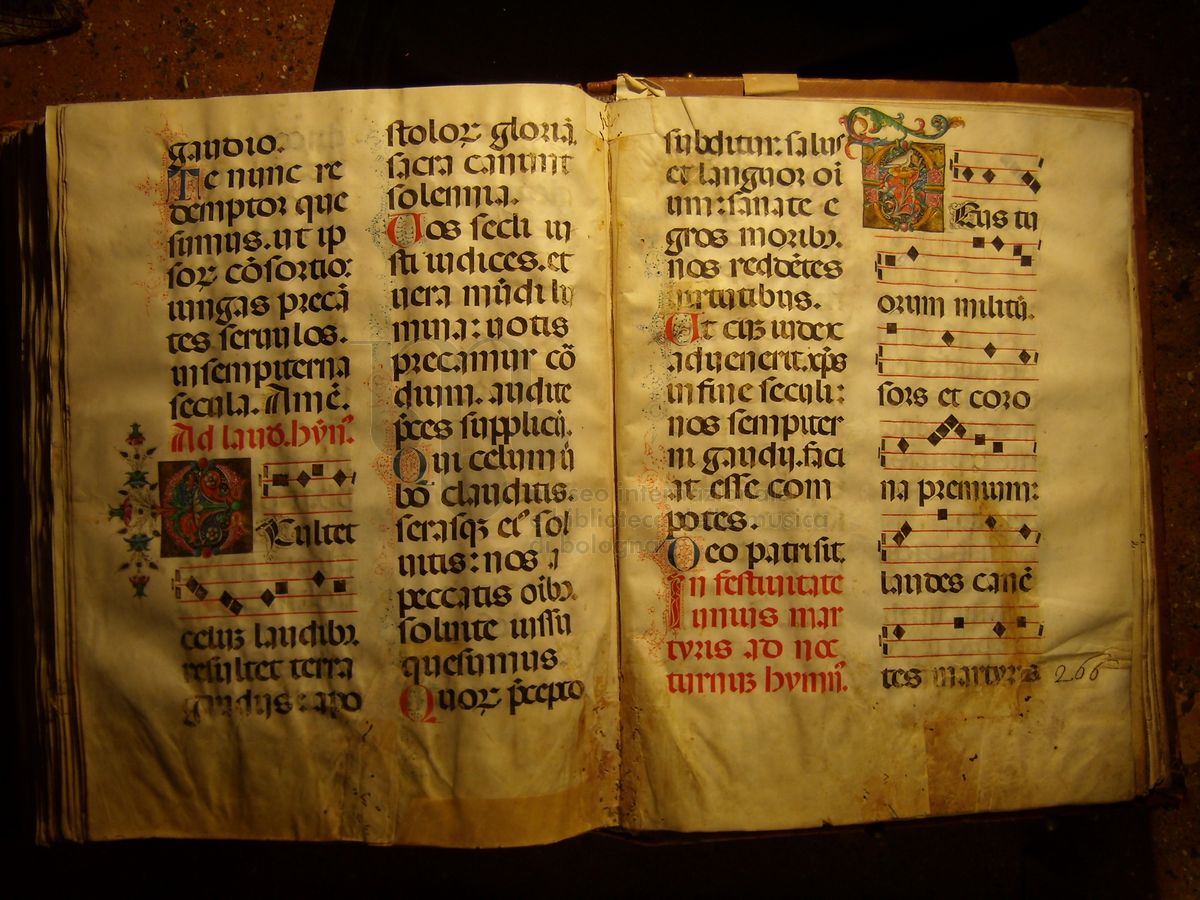 gaudio.
Te nunc re
demptor que
sumus.ut ip
soꝝ cõsortio:
iungas precã
tes seruulos.
insempiterna
secula. Amẽ.
Ad laud̃.hỹn̾.
Exultet
celuꝫ laudibꝫ
resultet terra
gaudijs: apo
stoloꝝ gloriã
sacra canunt
solennia.
Uos secli iu
sti iudices.et
uera mũdi lu
mina: uotis
precamur cõ
dium. audite
p̃ces supplicũ.
Qui celum ũ
bo clauditis.
serasqꝫ ei᾽ sol
uitis: nos a
peccatis oĩbꝫ
soluite iussu
quesumus
Quoꝝ p̃cepto
subditur: salus
et languor oi
um: sanate e
gros moribꝫ.
nos reddẽtes
uirtutibus.
Ut cuꝫ iudex
aduenerit.xp̃s
infine seculi:
nos sempiter
ni gaudij.faci
at esse com
potes.
Deo patri sit.
In festiuitate
unius mar
tyris ad noc
turnuꝫ hymn̾.
Deus tu
orum militũ.
sors et coro
na premium:
laudes canẽ
tes martyris
266